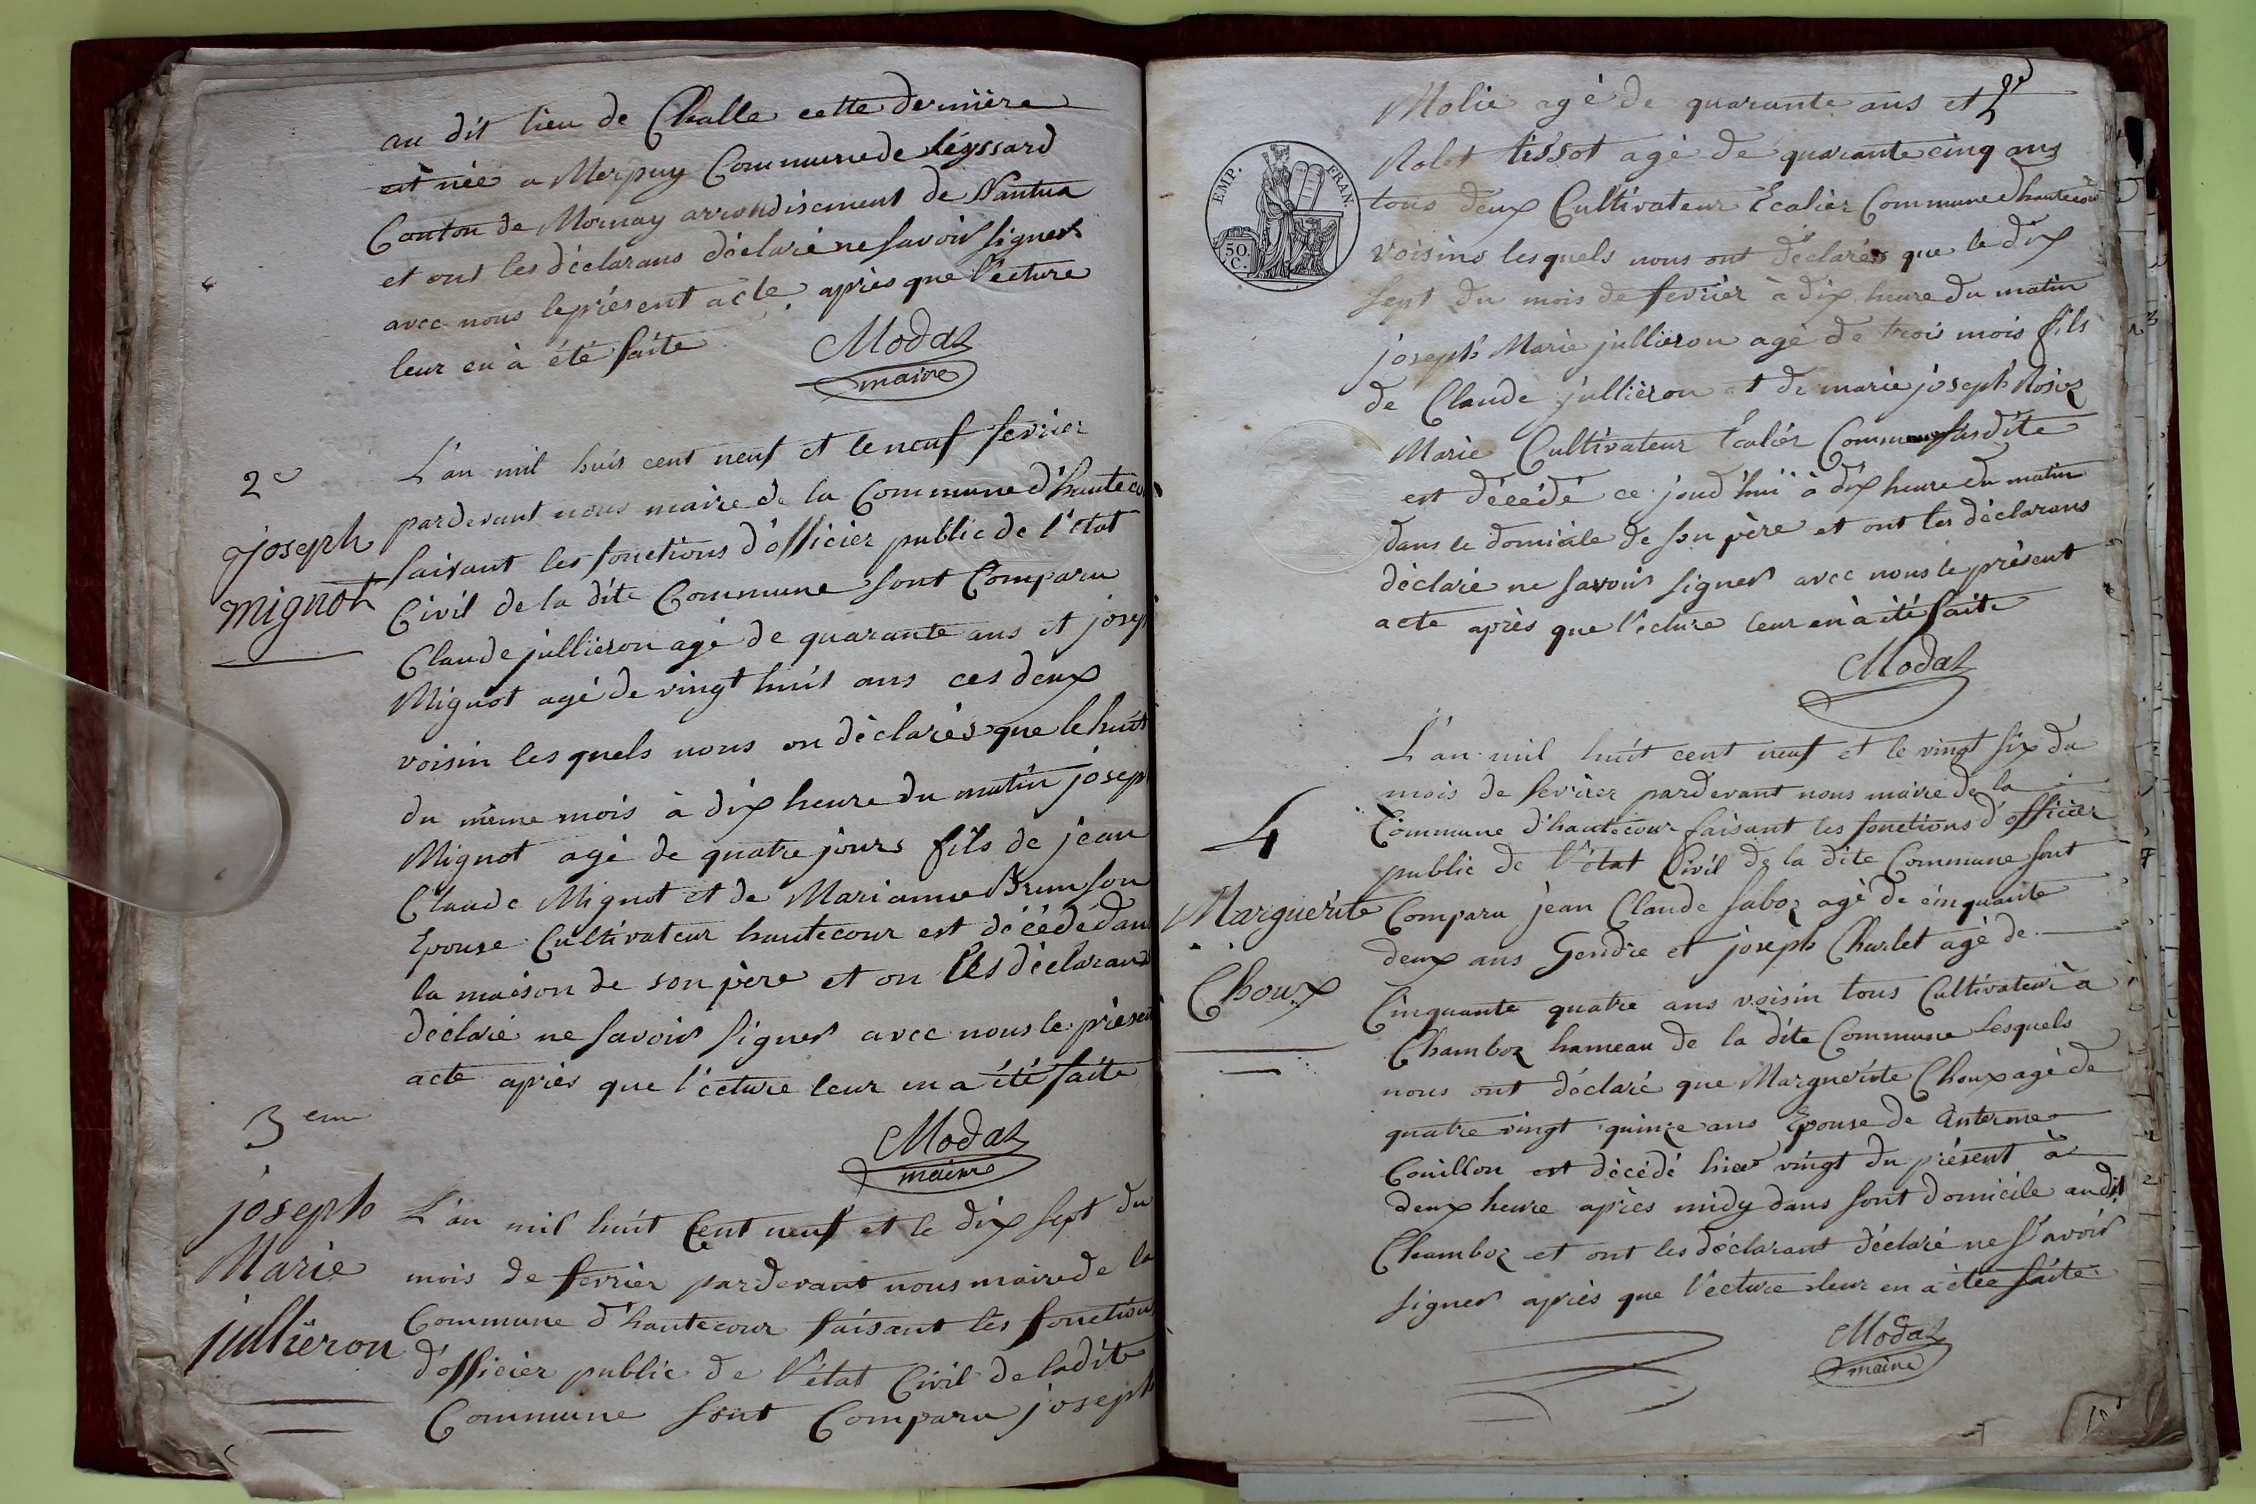 au dit lieu de Challe cette dernière
est née a Merpuy Commune de Léyssard
Canton de Mornay arrondisement de Nantua
et ont les déclarans déclaré ne savoir signer
avec nous le présent acte après que l'ecture
leur en à été faite
Modas
maire
2e
Joseph
mignot
L'an mil huit cent neuf et le neuf fevrier
pardevant nous maire de la Commune d'hauteco
faisant les fonctions d'officier public de l'état
Civil de la dite Commune sont Comparu
Claude jullieron agé de quarante ans et josep
Mignot agé de vingt huit ans ces deux
voisin les quels nous on déclarés que le huit
du même mois à dix heure du matin joseph
Mignot agé de quatre jours fils de jean
Claude Mignot et de Marianne Brunson
Epouse Cultivateur hautecour est décédé dan
la maison de son père et on les déclarand
déclaré ne savoir signer avec nous le présent
acte après que l'ecture leur en a été faite
Modas
maire
3eme
joseph
Marie
jullieron
L'an mil huit Cent neuf et le dix sept du
mois de fevrier pardevant nous maire de la
Commune d'hautecour faisant les fonction
d'officier public de l'état Civil de ladite
Commune sont Comparu joseph
EMP. FRAN.
50 C.
Molie agé de quarante ans et
Rolet tissot agé de quarante cinq ans
tous deux Cultivateur Ecalier Commune d'hautecour
voisins lesquels nous ont déclarés que le dix
sept du mois de fevrier à dix heure du matin
joseph Marie jullieron agé de trois mois fils
de Claude jullieron et de marie joseph Rosier
Marie Cultivateur Ecalier Commune susdite
est décédé ce jourd'hui à dix heure du matin
dans le domicile de son père et ont les déclarans
déclaré ne savoir signer avec nous le présent
acte après que l'ecture leur en à été faite
Modas
4
Marguerite
Choux
L'an mil huit cent neuf et le vingt six du
mois de fevrier pardevant nous maire de la
Commune d'hautecour faisant les fonctions d'officier
public de l'état Civil de la dite Commune sont
Comparu jean Claude saboz agé de cinquante
deux ans Gendre et joseph Charlet agé de
Cinquante quatre ans voisin tous Cultivateur à
Chamboz hameau de la dite Commune Lesquels
nous ont déclaré que Marguerite Choux agé de
quatre vingt quinze ans Epouse de Anterme
Couillon est décédé hier vingt du présent à
deux heure après midy dans sont domicile audit
Chamboz et ont les déclarant déclaré ne s'avoir
signer après que l'ecture leur en à étée faite
Modas
maire